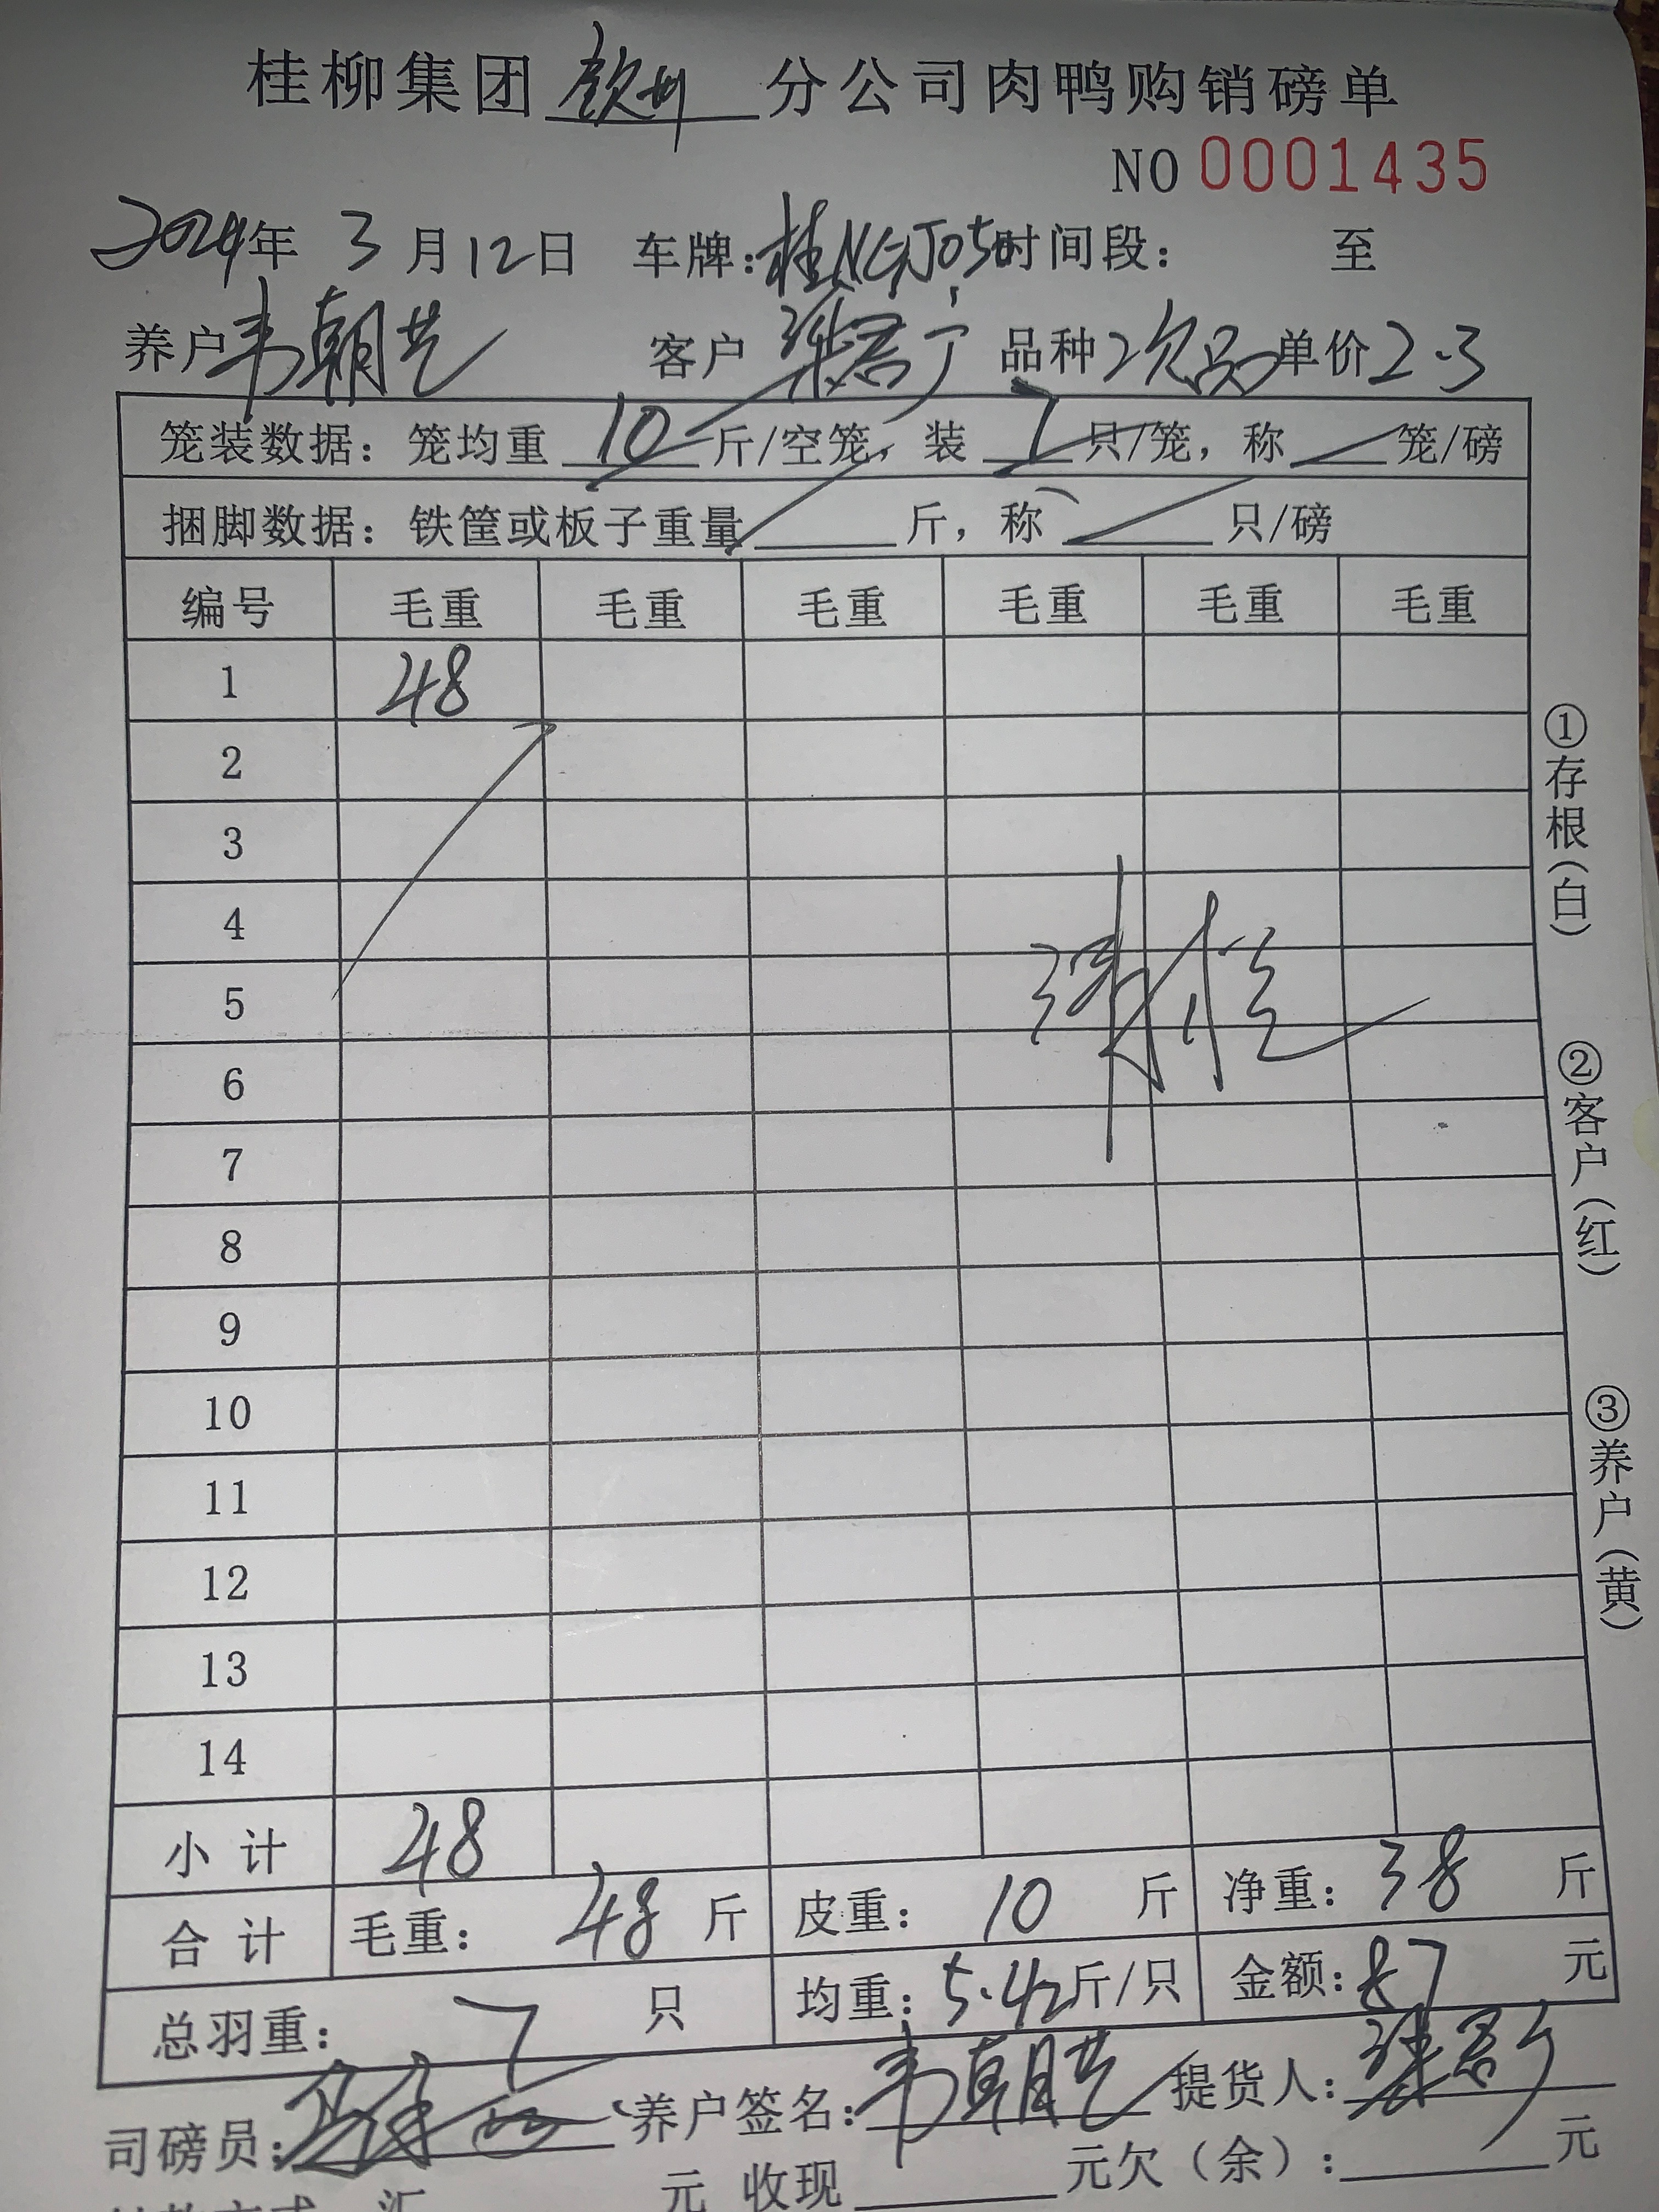 桂柳集团 钦州 分公司肉鸭购销磅单
NO 0001435
2024年 3 月 12 日 车牌: 桂N 时间段: 至
养户 韦朝艺 客户 品种 次品 单价 2.3
笼装数据: 笼均重 10 斤/空笼, 装 7 只/笼, 称 笼/磅
捆脚数据: 铁筐或板子重量 斤, 称 只/磅
编号 毛重 毛重 毛重 毛重 毛重 毛重
1 48
2
3
4
5
6
7
8
9
10
11
12
13
14
小 计 48
合 计 毛重: 48 斤 皮重: 10 斤 净重: 38 斤
总羽重: 7 只 均重: 5.42 斤/只 金额: 87 元
司磅员: 养户签名: 韦朝艺 提货人:
元 收现 元欠(余): 元
①存根(白)
②客户(红)
③养户(黄)